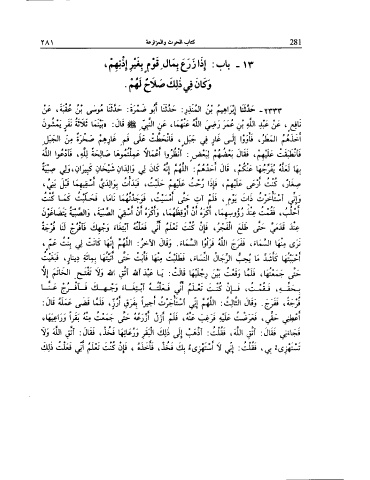 281 كتاب الحرث والمزارعة ٢٨١
١٣ - باب: إِذَا زَرَعَ بِمَالِ قَوْمٍ بِغَيْرِ إِذْنِهِمْ،
وَكَانَ فِي ذٰلِكَ صَلَاحٌ لَهُمْ.
٢٣٣٣- حَدَّثَنَا إِبْرَاهِيمُ بْنُ المُنْذِرِ: حَدَّثَنَا أَبُو ضَمْرَةَ: حَدَّثَنَا مُوسَى بْنُ عُقْبَةَ، عَنْ
نَافِعٍ، عَنْ عَبْدِ اللَّهِ بْنِ عُمَرَ رَضِيَ اللَّهُ عَنْهُمَا، عَنِ النَّبِيِّ ﷺ قَالَ: «بَيْنَمَا ثَلَاثَةُ نَفَرٍ يَمْشُونَ
أَخَذَهُمُ المَطَرُ، فَأَوَوْا إِلَى غَارٍ فِي جَبَلٍ، فَانْحَطَّتْ عَلَى فَمِ غَارِهِمْ صَخْرَةٌ مِنَ الجَبَلِ
فَانْطَبَقَتْ عَلَيْهِمْ، فَقَالَ بَعْضُهُمْ لِبَعْضٍ: انْظُرُوا أَعْمَالًا عَمِلْتُمُوهَا صَالِحَةً لِلَّهِ، فَادْعُوا اللَّهَ
بِهَا لَعَلَّهُ يُفَرِّجُهَا عَنْكُمْ، قَالَ أَحَدُهُمْ: اللَّهُمَّ إِنَّهُ كَانَ لِي وَالِدَانِ شَيْخَانِ كَبِيرَانِ، وَلِي صِبْيَةٌ
صِغَارٌ، كُنْتُ أَرْعَى عَلَيْهِمْ، فَإِذَا رُحْتُ عَلَيْهِمْ حَلَبْتُ، فَبَدَأْتُ بِوَالِدَيَّ أَسْقِيهِمَا قَبْلَ بَنِيَّ،
وَإِنِّي اسْتَأْخَرْتُ ذَاتَ يَوْمٍ، فَلَمْ آتِ حَتَّى أَمْسَيْتُ، فَوَجَدْتُهُمَا نَامَا، فَحَلَبْتُ كَمَا كُنْتُ
أَحْلُبُ، فَقُمْتُ عِنْدَ رُؤُوسِهِمَا، أَكْرَهُ أَنْ أُوقِظَهُمَا، وَأَكْرَهُ أَنْ أَسْقِيَ الصِّبْيَةَ، وَالصِّبْيَةُ يَتَضَاغَوْنَ
عِنْدَ قَدَمَيَّ حَتَّى طَلَعَ الفَجْرُ، فَإِنْ كُنْتَ تَعْلَمُ أَنِّي فَعَلْتُهُ ابْتِغَاءَ وَجْهِكَ فَافْرُجْ لَنَا فُرْجَةً
نَرَى مِنْهَا السَّمَاءَ، فَفَرَجَ اللَّهُ فَرَأَوُا السَّمَاءَ. وَقَالَ الآخَرُ: اللَّهُمَّ إِنَّهَا كَانَتْ لِي بِنْتُ عَمٍّ،
أَحْبَبْتُهَا كَأَشَدِّ مَا يُحِبُّ الرِّجَالُ النِّسَاءَ، فَطَلَبْتُ مِنْهَا فَأَبَتْ حَتَّى أَتَيْتُهَا بِمِائَةِ دِينَارٍ، فَبَغَيْتُ
حَتَّى جَمَعْتُهَا، فَلَمَّا وَقَعْتُ بَيْنَ رِجْلَيْهَا قَالَتْ: يَا عَبْدَ اللَّهِ اتَّقِ اللَّهَ وَلَا تَفْتَحِ الخَاتَمَ إِلَّا
بِحَقِّهِ، فَقُمْتُ، فَإِنْ كُنْتَ تَعْلَمُ أَنِّي فَعَلْتُهُ ابْتِغَاءَ وَجْهِكَ فَافْرُجْ عَنَّا
فُرْجَةً، فَفَرَجَ. وَقَالَ الثَّالِثُ: اللَّهُمَّ إِنِّي اسْتَأْجَرْتُ أَجِيرًا بِفَرَقِ أَرُزٍّ، فَلَمَّا قَضَى عَمَلَهُ قَالَ:
أَعْطِنِي حَقِّي، فَعَرَضْتُ عَلَيْهِ فَرَغِبَ عَنْهُ، فَلَمْ أَزَلْ أَزْرَعُهُ حَتَّى جَمَعْتُ مِنْهُ بَقَرًا وَرَاعِيهَا،
فَجَاءَنِي فَقَالَ: اتَّقِ اللَّهَ، فَقُلْتُ: اذْهَبْ إِلَى ذٰلِكَ الْبَقَرِ وَرُعَاتِهَا فَخُذْ، فَقَالَ: اتَّقِ اللَّهَ وَلَا
تَسْتَهْزِئْ بِي، فَقُلْتُ: إِنِّي لَا أَسْتَهْزِئُ بِكَ فَخُذْ، فَأَخَذَهُ، فَإِنْ كُنْتَ تَعْلَمُ أَنِّي فَعَلْتُ ذٰلِكَ